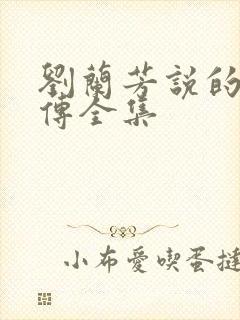 劉蘭芳説的
傳全集
小布愛喫蛋撻